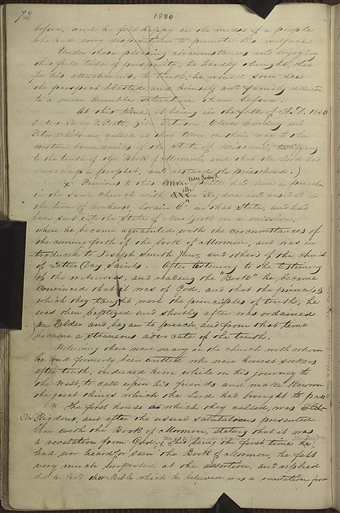 72 1830
before, and he felt happy in the midst of a people
who had every disposition to promote his welfare.
Under these pleasing circumstances and enjoying
this full tide of prosperity, he hardly thought, that
for his attachments to truth, he would soon see
the prospect blasted, and himself and family reduced
to a more humble situation than before.
At this time, it being in the fall of A.D. 1830
Peter
that time, on their way to the
western boundary of the state of Missouri, testifying
to the truth of the Book of Mormon, and that the Lord had
raised up a prophet, and restored the priesthood.)
X Previous to this, Elder Pratt had been a preacher
in the same church with Mr. Rigdon, and resided in
the town of Amherst, Lorain Co. in that state, and had
been sent into the State of New York on a mission,
where he became acquainted with the circumstances of
the coming forth of the Book of Mormon, and was in
troduced to Joseph Smith Junr. and others of the church
of Latter Day Saints. After listening to the testimony
of the witnesses, and reading the Book, he became
convinced that it was of God, and that the principles
which they taught were the principles of truth, he
was then baptized, and shortly after was ordained
an Elder and began to preach, and from that time
became a strenuous advocate of the truth.
Believing there were many in the church with whom
he had formerly been united who were honest seekers
after truth, induced him while on his journey to
the West, to call upon his friends, and make known
the great things which the Lord had brought to pass.
X The first house at which they called, was
Mr Rigdons, and after the usual salutations presented
him with the Book of Mormon, stating that it was
a revelation from God. This being the first time he
had ever heard of or seen the Book of Mormon, he felt
very much surprised at the assertion, and replied
that he had the Bible which he believed was a revelation from